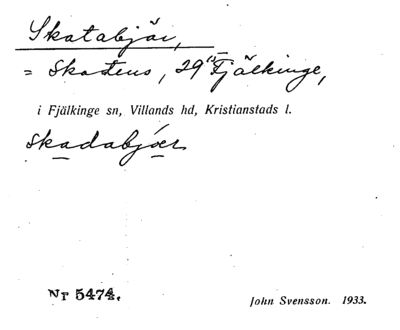 Skatabjär,
= Skatens, 29 Fjälkinge,
i Fjälkinge sn, Villands hd, Kristianstads l.
skadabjóer
Nr 5474.
John Svensson. 1933.